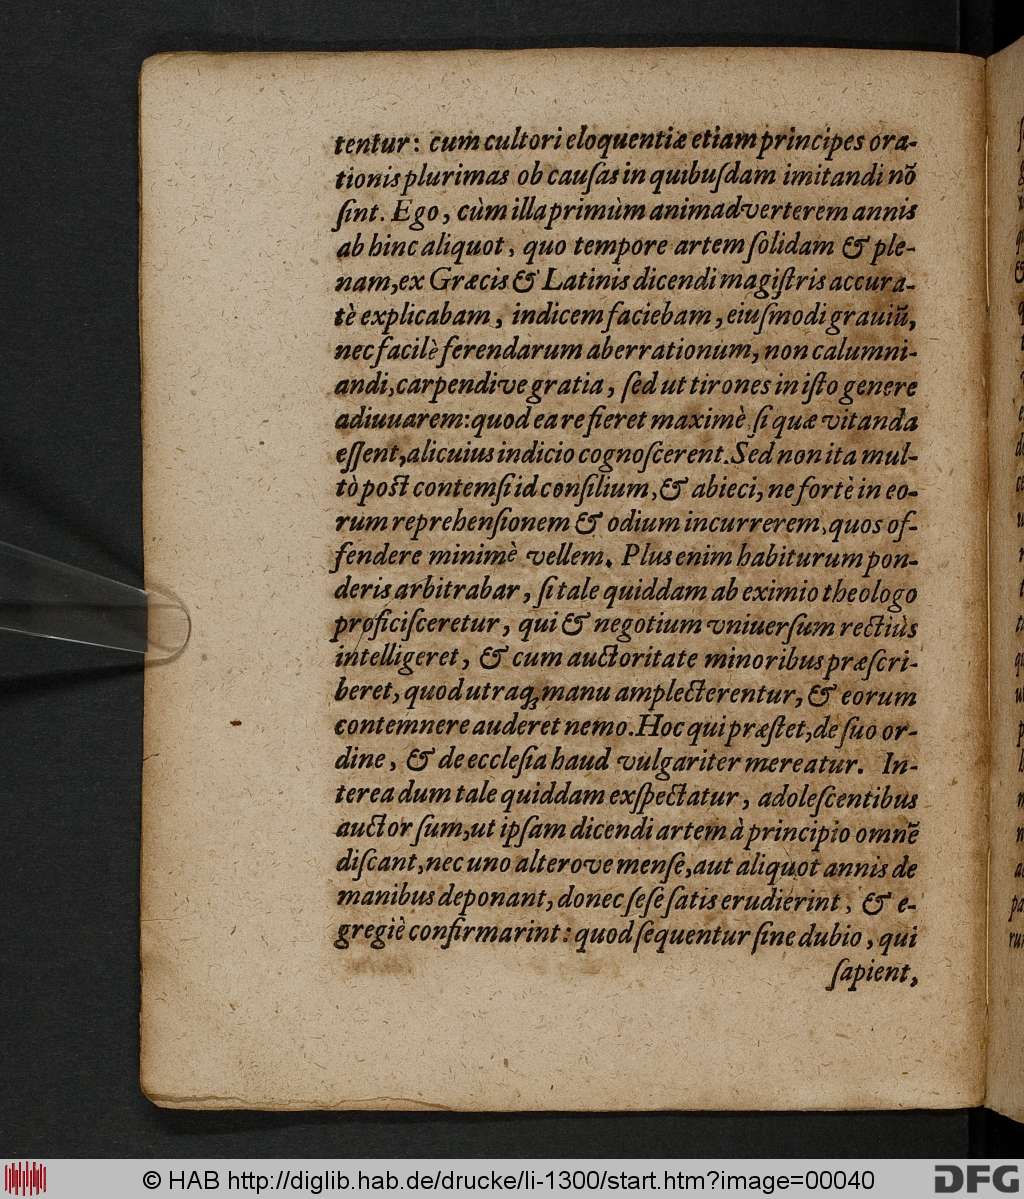 tentur: cum cultori eloquentiæ etiam principes ora-
tionis plurimas ob cauſas in quibuſdam imitandi nō
ſint. Ego, cùm illa primùm animadverterem annis
ab hinc aliquot, quo tempore artem ſolidam & ple-
nam, ex Græcis & Latinis dicendi magiſtris accura-
tè explicabam, indicem faciebam, eiuſmodi grauiū,
nec facilè ferendarum aberrationum, non calumni-
andi, carpendive gratia, ſed ut tirones in iſto genere
adiuuarem: quod ea re fieret maximè ſi quæ vitanda
eſſent, alicuius indicio cognoſcerent. Sed non ita mul-
tò poſt contemſi id conſilium, & abieci, ne fortè in eo-
rum reprehenſionem & odium incurrerem, quos of-
fendere minimè vellem. Plus enim habiturum pon-
deris arbitrabar, ſi tale quiddam ab eximio theologo
proficiſceretur, qui & negotium vniuerſum rectiùs
intelligeret, & cum auctoritate minoribus præſcri-
beret, quod utraq; manu amplecterentur, & eorum
contemnere auderet nemo. Hoc qui præſtet, de ſuo or-
dine, & de eccleſia haud vulgariter mereatur. In-
terea dum tale quiddam exſpectatur, adoleſcentibus
auctor ſum, ut ipſam dicendi artem à principio omnē
diſcant, nec uno alterove menſe, aut aliquot annis de
manibus deponant, donec ſeſe ſatis erudierint, & e-
gregiè confirmarint: quod ſequentur ſine dubio, qui
ſapient,
© HAB http://diglib.hab.de/drucke/li-1300/start.htm?image=00040
DFG